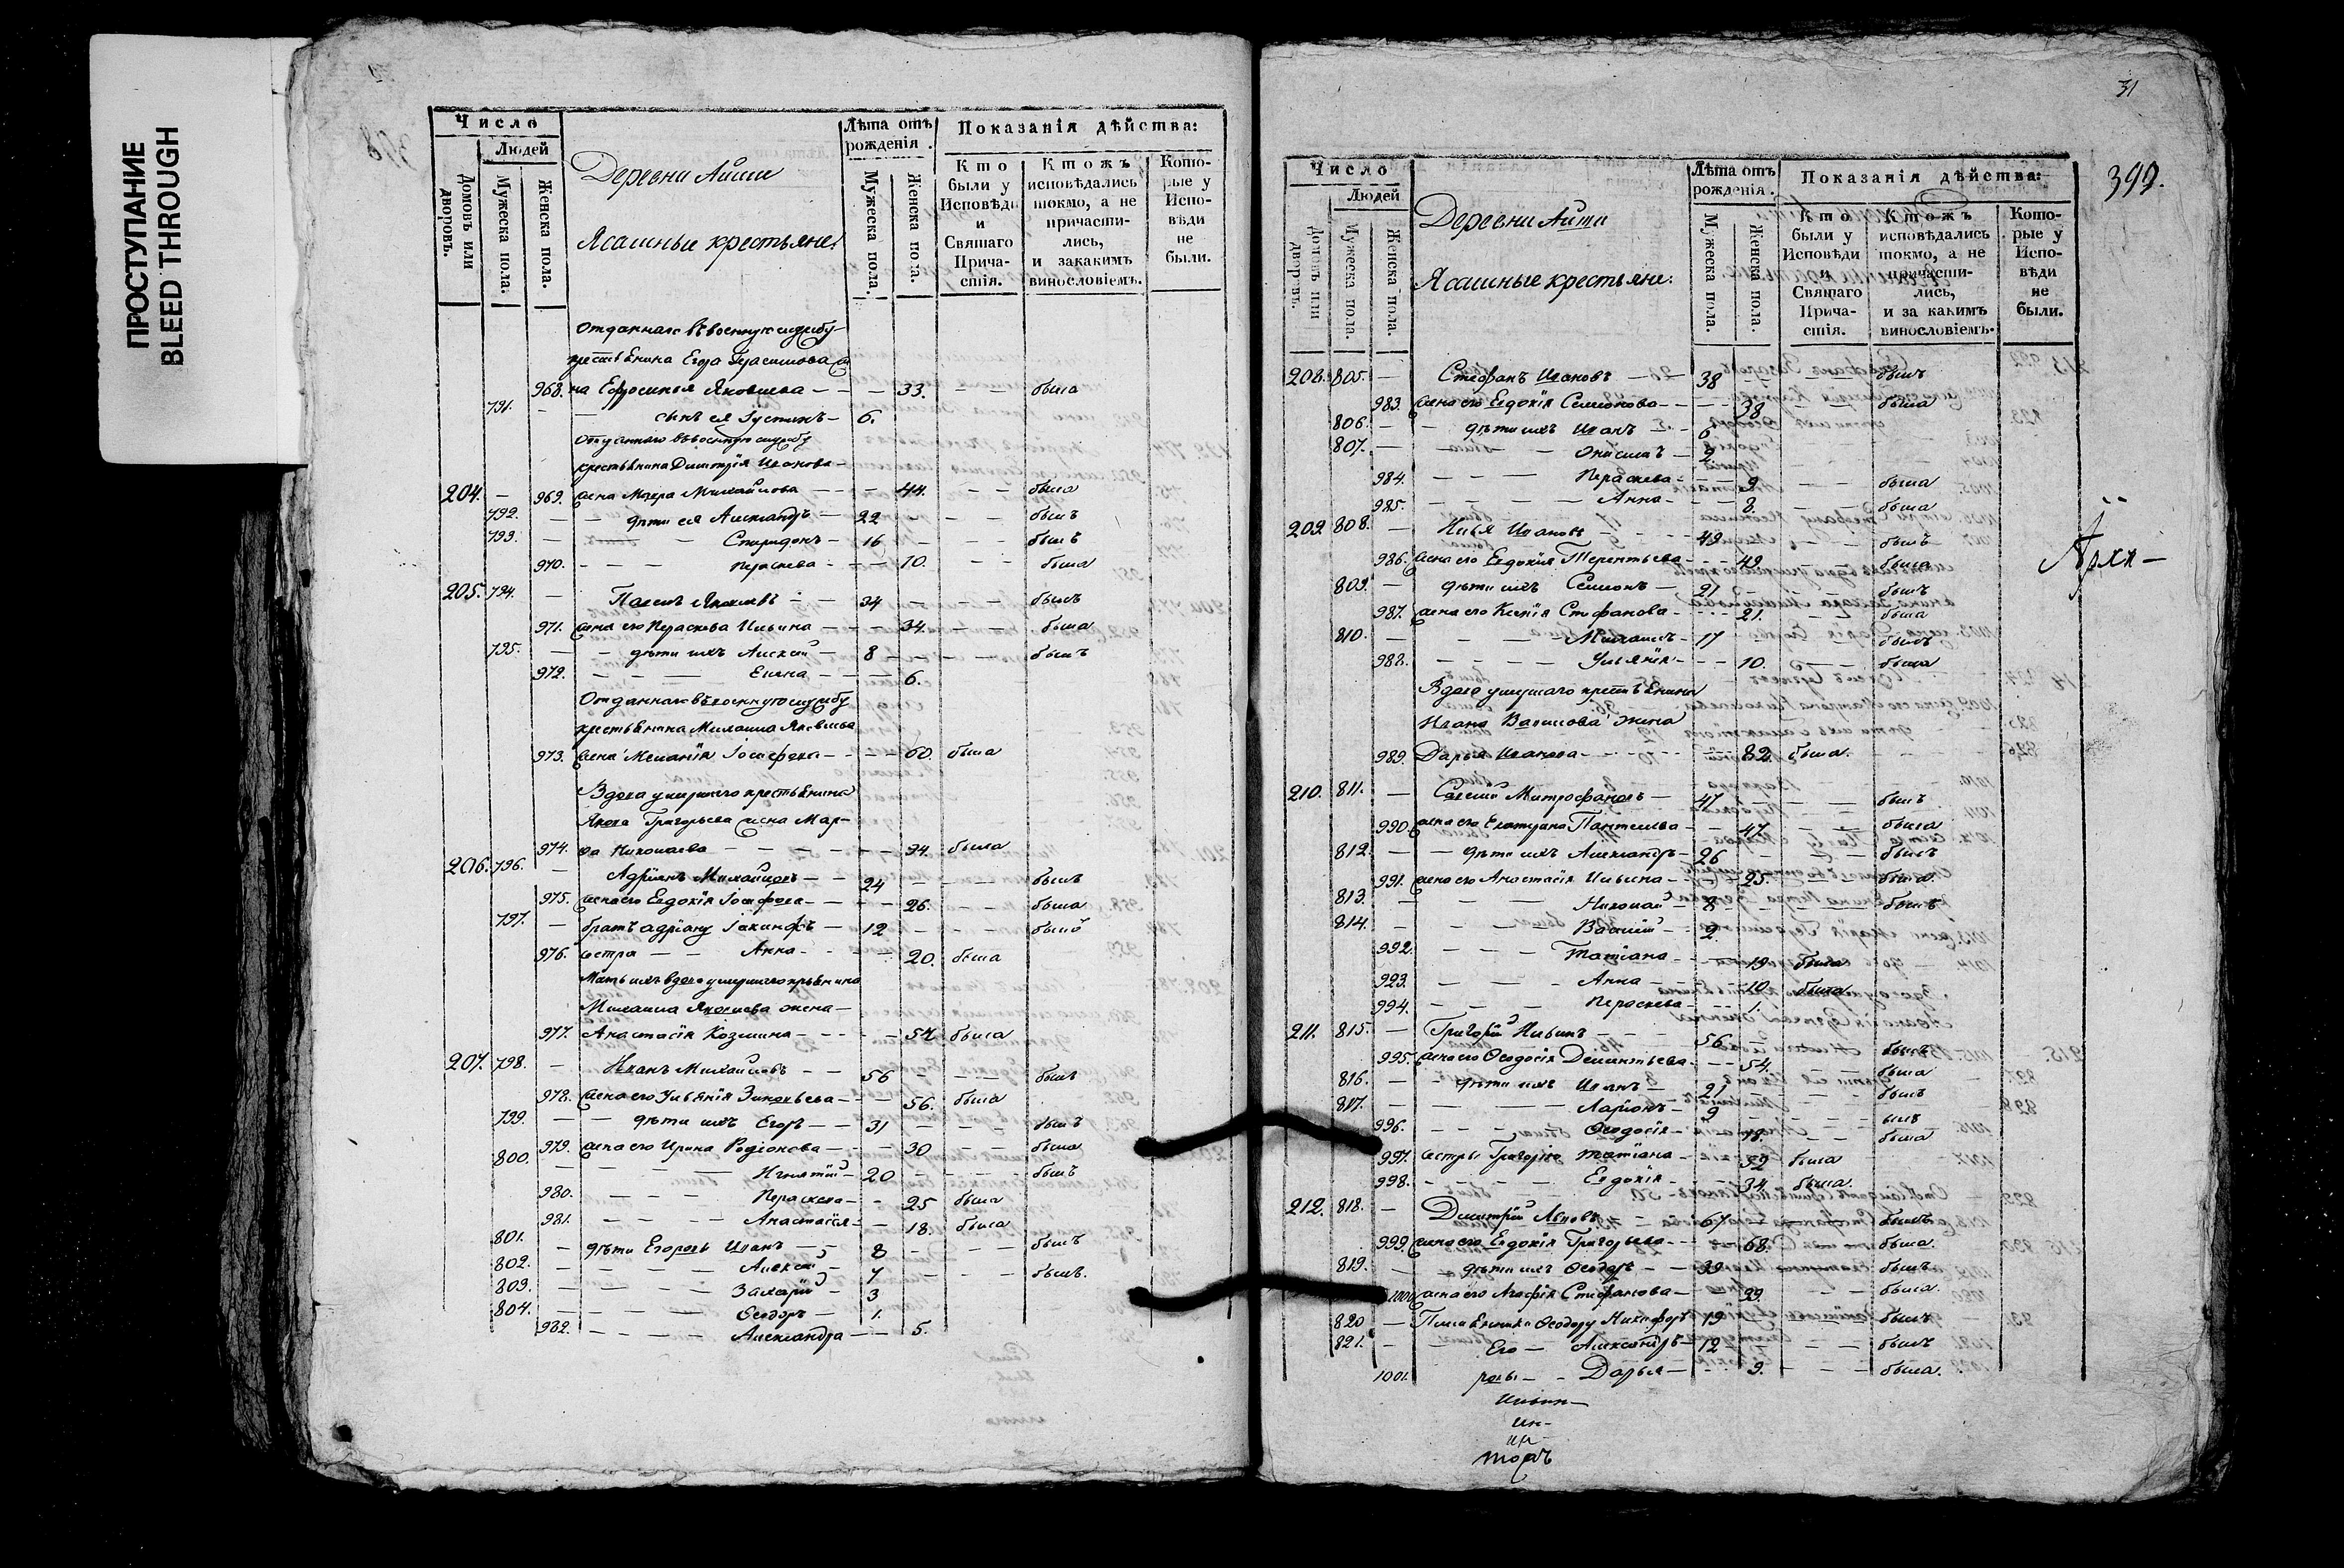 ПРОСТУПАНИЕ
BLEED THROUGH
Число
Людей
Домовъ или дворовъ.
Мужеска пола.
Женска пола.
Деревни Айши
Ясашные крестьяне
Лѣта отъ рожденія.
Мужеска пола.
Женска пола.
Показанія дѣйства:
Кто были у Исповѣди и Святаго Причастія.
Ктожъ исповѣдались токмо, а не причастились, и за какимъ винословіемъ.
Которые у Исповѣди не были.
Отданнаго въ военную службу
крестьянина Егора Герасимова же
968. на Ефросинья Яковлева 33. была
791. сынъ ея Іустинъ 6.
Отданнаго въ военную службу
крестьянина Димитрія Иванова
204. 969. жена Мавра Михайлова 44. была
792. дѣти ея Александръ 22 былъ
793. Спиридонъ 16 былъ
970. Параскева 10. была
205. 794. Павелъ Яковлевъ 34 былъ
971. жена его Параскева Ильина 34. была
795. дѣти ихъ Алексѣй 8 былъ
972. Елена 6.
Отданнаго въ военную службу
крестьянина Михаила Яковлева
973. жена Меланія Іосифова 60. была
Вдова умершаго крестьянина
Якова Григорьева жена Мар-
974. ѳа Николаева 94. была
206. 796. Адріянъ Михайловъ 24 былъ
975. жена его Евдокія Іосифова 26. была
797. братъ Адріану Іакинфъ 12 былъ
976. сестра Анна 20. была
Мать ихъ вдова умершаго крестьянина
Михаила Яковлева жена
977. Анастасія Козмина 52 была
207. 798. Иванъ Михайловъ 56 былъ
978. жена его Ульянія Зиновьева 56. была
799. дѣти ихъ Егоръ 31 былъ
979. жена его Ирина Родіонова 30 была
800. Игнатій 20 былъ
980. Параскева 25 была
981. Анастасія 18. была
801. дѣти Егоровы Иванъ 8 былъ
802. Алексѣй 7 былъ.
803. Захарій 3
804. Ѳеодоръ 1.
982. Александра 5.
31
399.
Число
Людей
Домовъ или дворовъ.
Мужеска пола.
Женска пола.
Деревни Айши
Ясашные крестьяне.
Лѣта отъ рожденія.
Мужеска пола.
Женска пола.
Показанія дѣйства:
Кто были у Исповѣди и Святаго Причастія.
Ктожъ исповѣдались токмо, а не причастились, и за какимъ винословіемъ.
Которые у Исповѣди не были.
208. 805. Стефанъ Ивановъ 38 былъ
983. жена его Евдокія Семіонова 38 была
806. дѣти ихъ Иванъ 6
807. Онисимъ 2.
984. Параскева 9 была
985. Анна 8. была
209. 808. Илья Ивановъ 49 былъ
986. жена его Евдокия Терентьева 49 была
809. дѣти ихъ Семіонъ 21 былъ
987. жена его Ксенія Стефанова 21. была
810. Михаилъ 17 былъ
988. Ульянія 10. была
Вдова умершаго крестьянина
Ивана Вавилова жена
989. Дарья Иванова 82. была.
210. 811. Савелий Митрофановъ 47 былъ
990. жена его Екатерина Пантелева 47. была
812. дѣти ихъ Александръ 26 былъ
991. жена его Анастасія Ильина 25. была
813. Николай 8 былъ
814. Василій 2.
992. Татіана 19 была
993. Анна 10. была
994. Параскева 1.
211. 815. Григорій Ильинъ 56 былъ
995. жена его Ѳеодосія Дементьева 54. была
816. дѣти ихъ Иванъ 21 былъ
817. Ларіонъ 9 былъ
996. Ѳеодосія 18. была
997. сестры Григорію Татіана 52 была
998. Евдокія 34. была.
212. 818. Димитрій Львовъ 67 былъ
999. жена его Евдокія Григорьева 68. была.
819. дѣти ихъ Ѳеодоръ 39 былъ
1000. жена его Агафія Стефанова 39. была.
820 Племянники Ѳеодору Никифоръ 19 былъ
821. Его Александръ 12 былъ
1001. Дарья 9. была.
Архи-